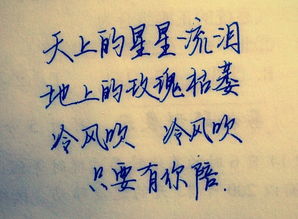 天上的星星流泪
地上的玫瑰枯萎
冷风吹 冷风吹
只要有你陪.